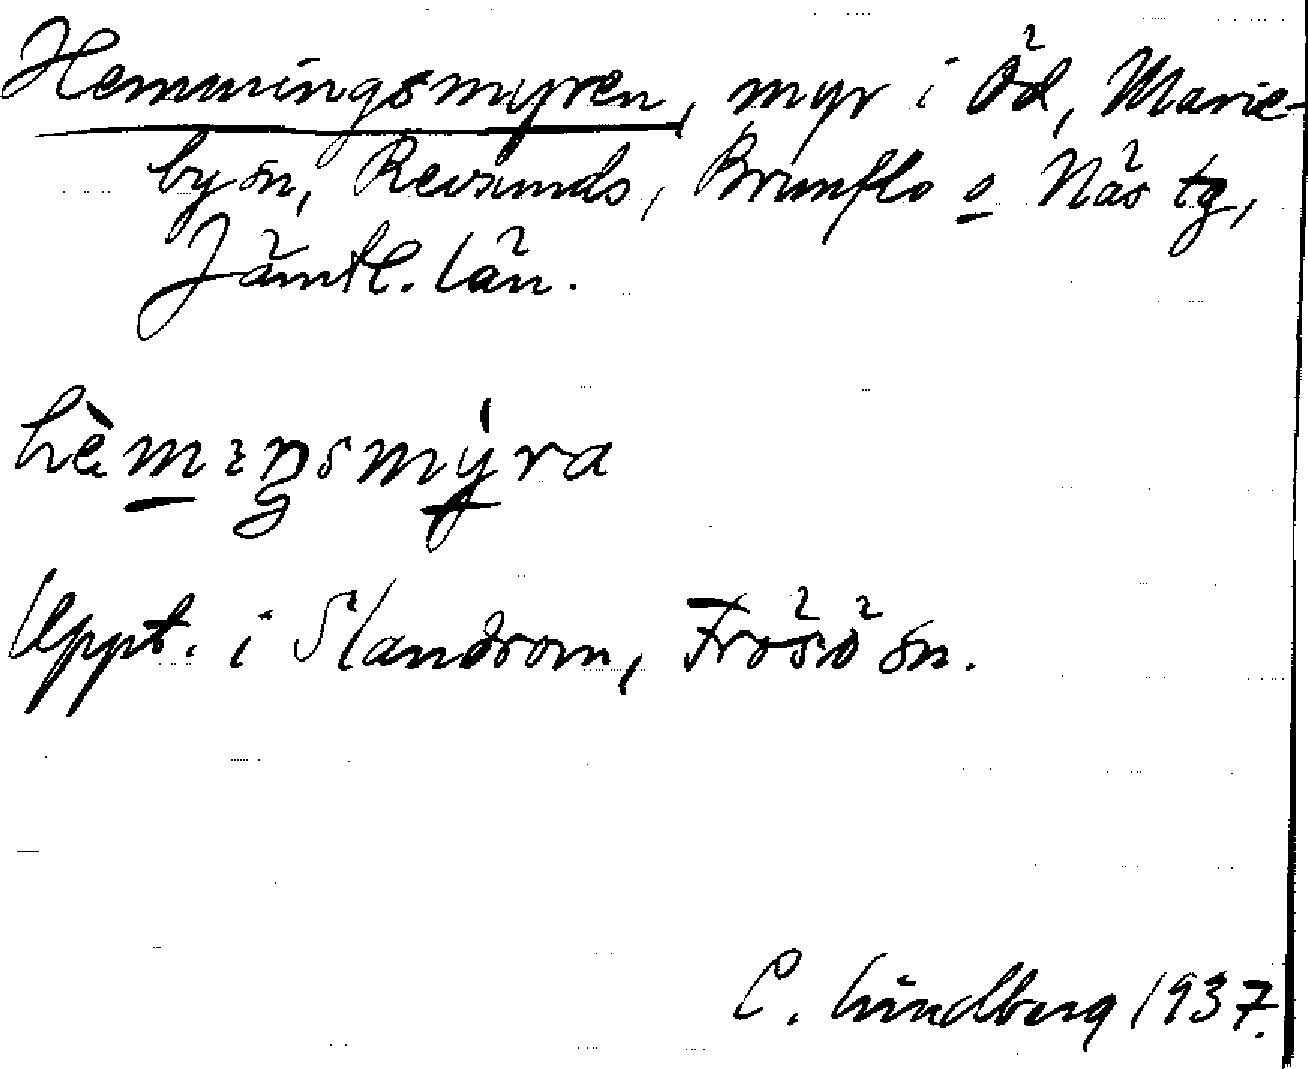 Hemmingsmyren, myr i Öd, Marie-
by sn, Revsunds, Brunflo o Näs tg,
Jämtl. län.
hèmıŋsmýra
Uppt. i Slandrom, Frösö sn.
C. Lindberg 1937.